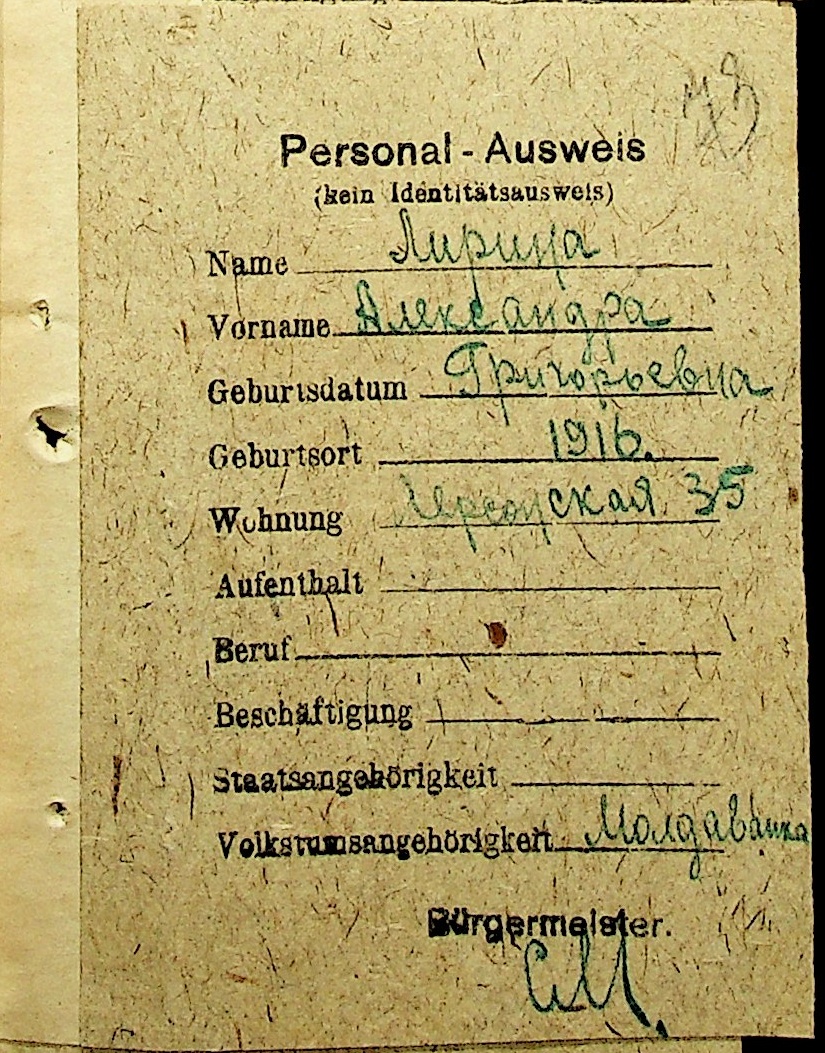 Personal - Ausweis
(kein Identitätsausweis)
Name Лирица
Vorname Александра
Geburtsdatum Григорьевна
Geburtsort 1916.
Wohnung Херсонская 35
Aufenthalt
Beruf
Beschäftigung
Staatsangehörigkeit
Volkstumsangehörigkeit Молдаванка
Bürgermeister.